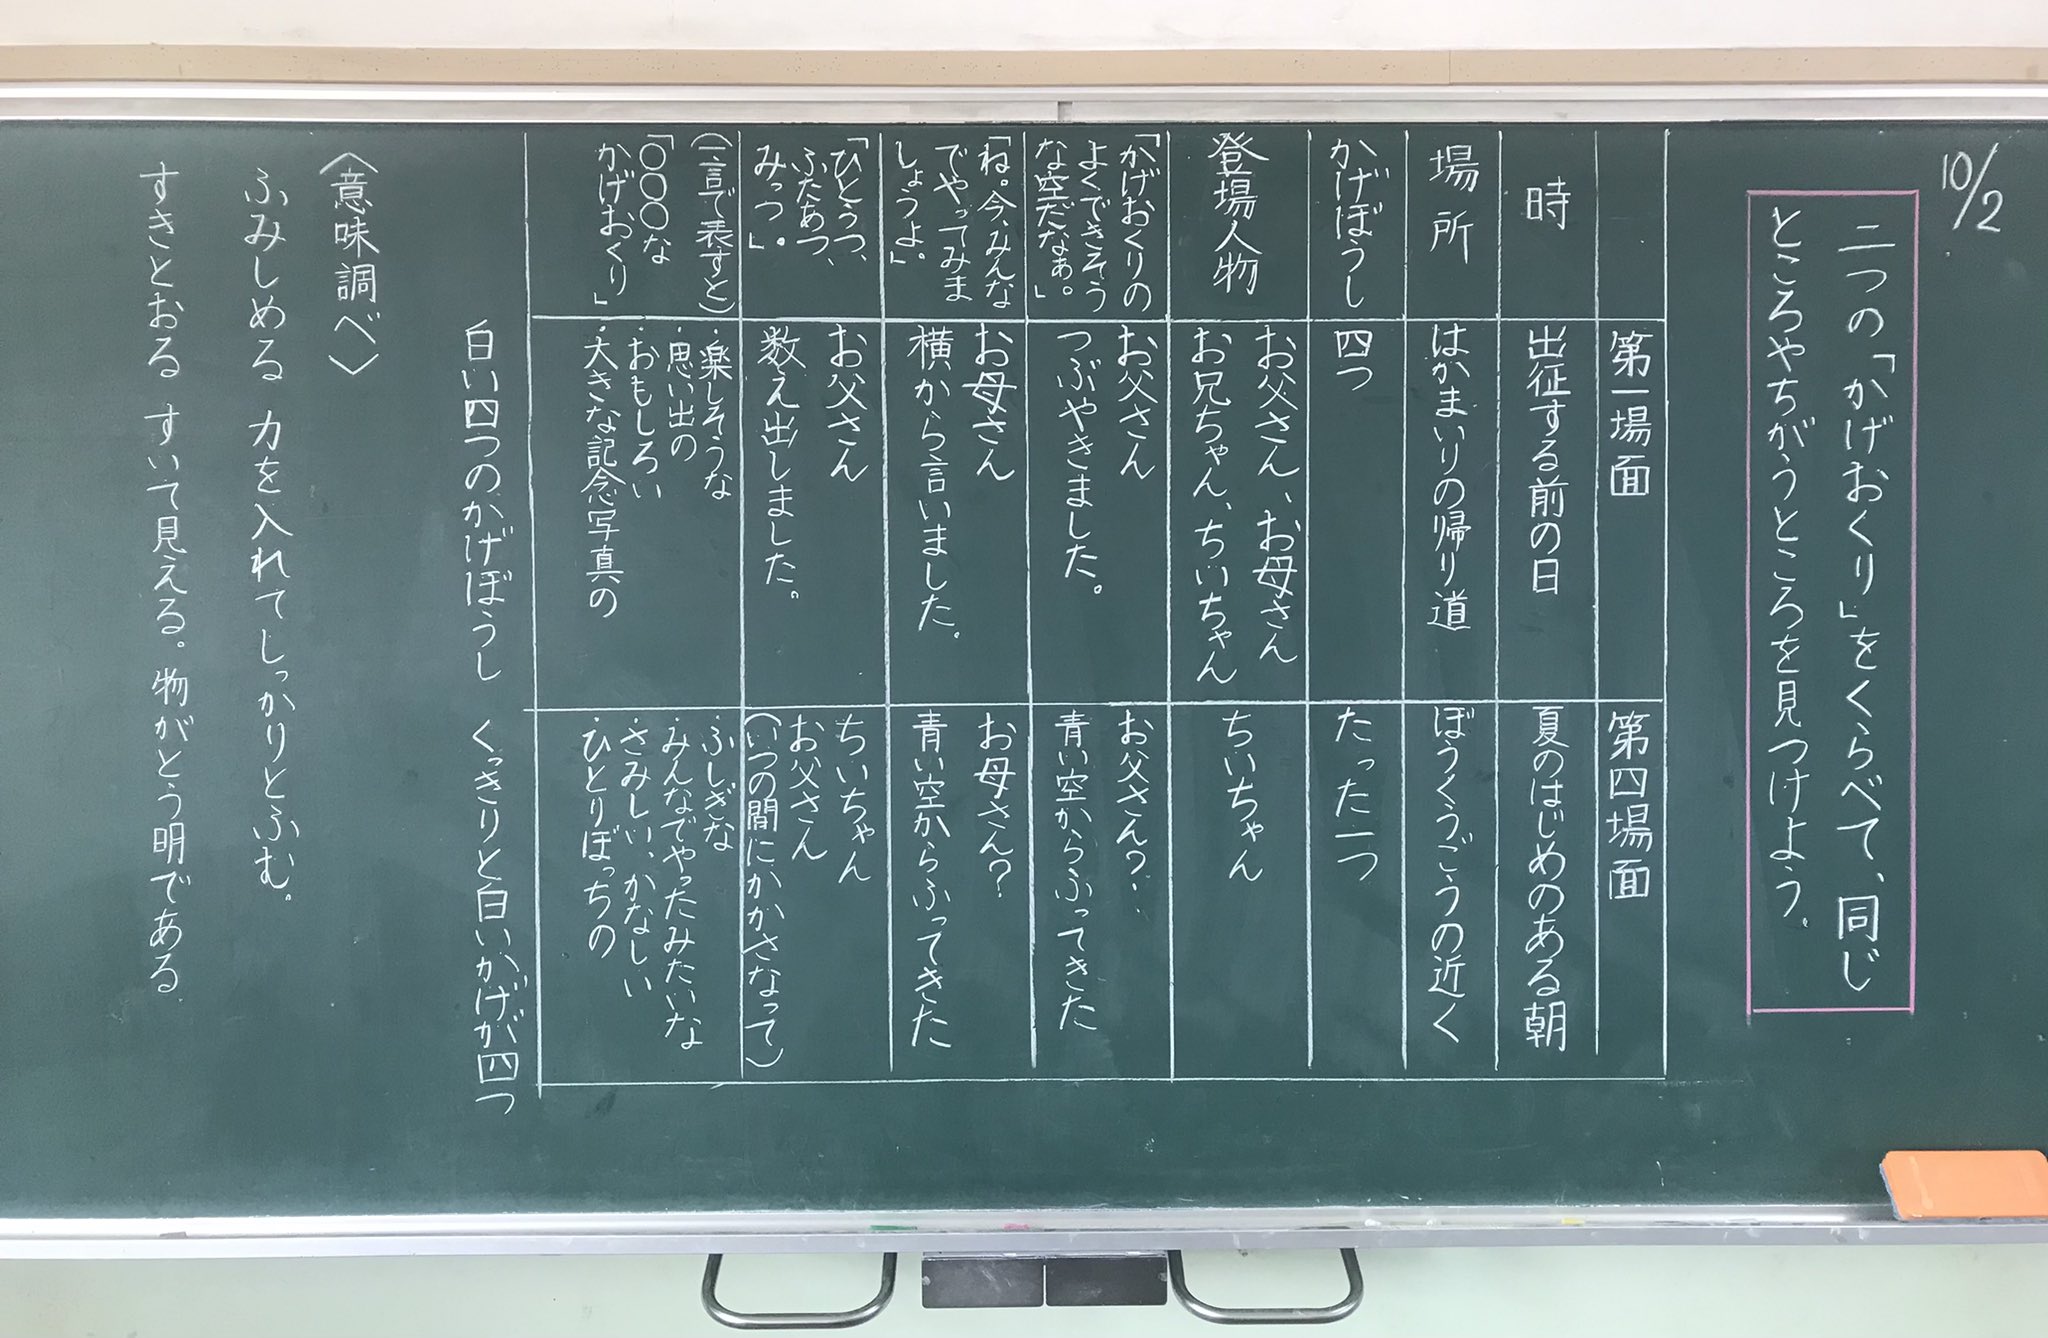 10/2
二つの「かげおくり」をくらべて、同じ
ところやちがうところを見つけよう。
第一場面
第四場面
時
出征する前の日
夏のはじめのある朝
場所
はかまいりの帰り道
ぼうくうごうの近く
かげぼうし
四つ
たった一つ
登場人物
お父さん、お母さん
お兄ちゃん、ちいちゃん
ちいちゃん
「かげおくりの
よくできそう
な空だなぁ。」
お父さん
つぶやきました。
お父さん?
青い空からふってきた
「ね。今、みんな
でやってみま
しょうよ。」
お母さん
横から言いました。
お母さん?
青い空からふってきた
「ひとうつ、
ふたあつ、
みっつ。」
お父さん
数え出しました。
ちいちゃん
お父さん
(いつの間にかかさなって)
(一言で表すと)
「〇〇〇な
かげおくり」
・楽しそうな
・思い出の
・おもしろい
・大きな記念写真の
・ふしぎな
・みんなでやったみたいな
・さみしい、かなしい
・ひとりぼっちの
白い四つのかげぼうし
くっきりと白いかげが四つ
〈意味調べ〉
ふみしめる 力を入れてしっかりとふむ。
すきとおる すいて見える。物がとう明である